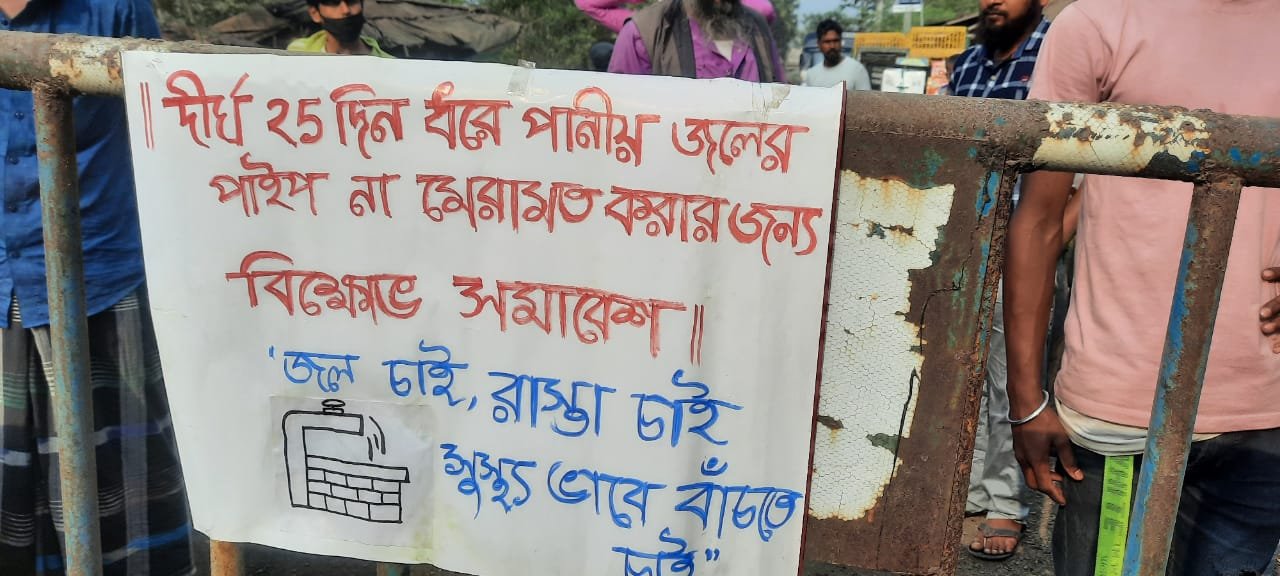 ॥ দীর্ঘ 25 দিন ধরে পানীয় জলের
পাইপ না মেরামত করার জন্য
বিক্ষোভ সমাবেশ ॥
'জল চাই, রাস্তা চাই
সুস্থ্য ভাবে বাঁচতে
চাই"